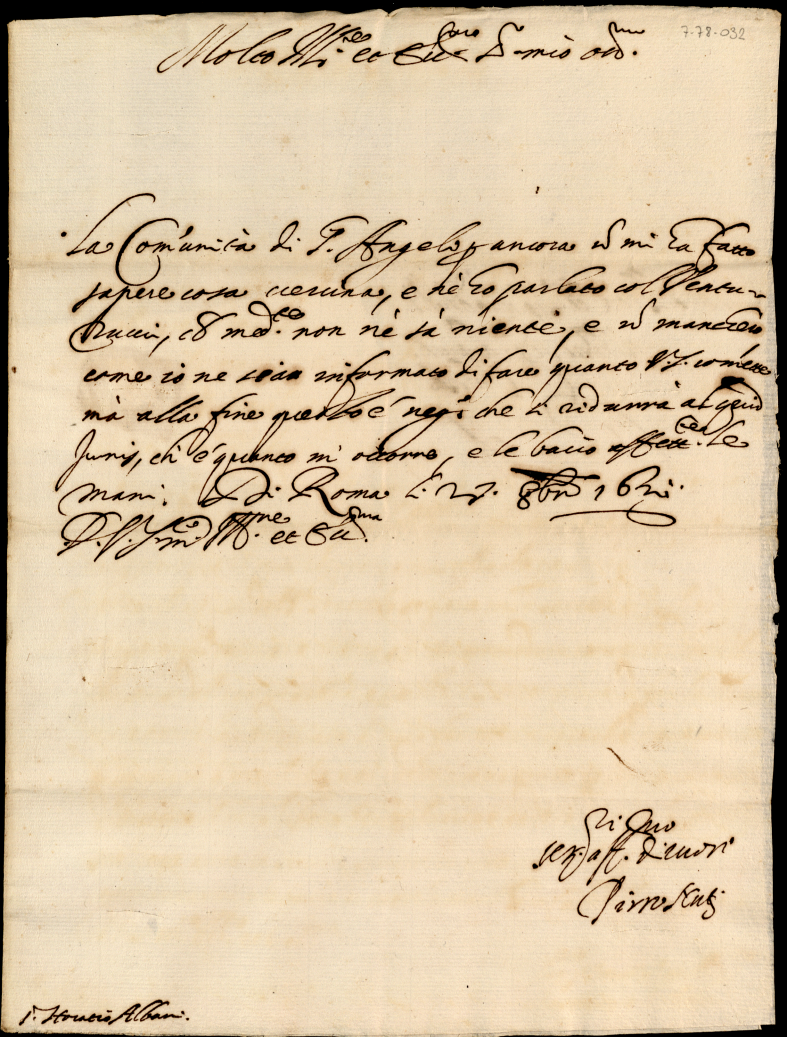 7.78.032
Molto Ill.re et Ecc.mo S.r mio oss.mo
La Com'unità di S. Angelo p ancora nō mi ha fatto
sapere cosa veruna, e nè ho parlato col Ventu-
rucci, ch' med.te non nè sà niente, e nō mancherò
come io ne sia informato di fare quanto V.S. com̄ette
mà alla fine questo è neg.o che si ridurrà ad quid
Juris, ch' è quanto m' occorre, e le bacio affett.te le
mani. Di Roma li 27. 8bre 16
D. V. S. m.to Ill.re et Ecc.ma
Ser.re aff. di cuore
Pirro
S.r Horatio Albani.